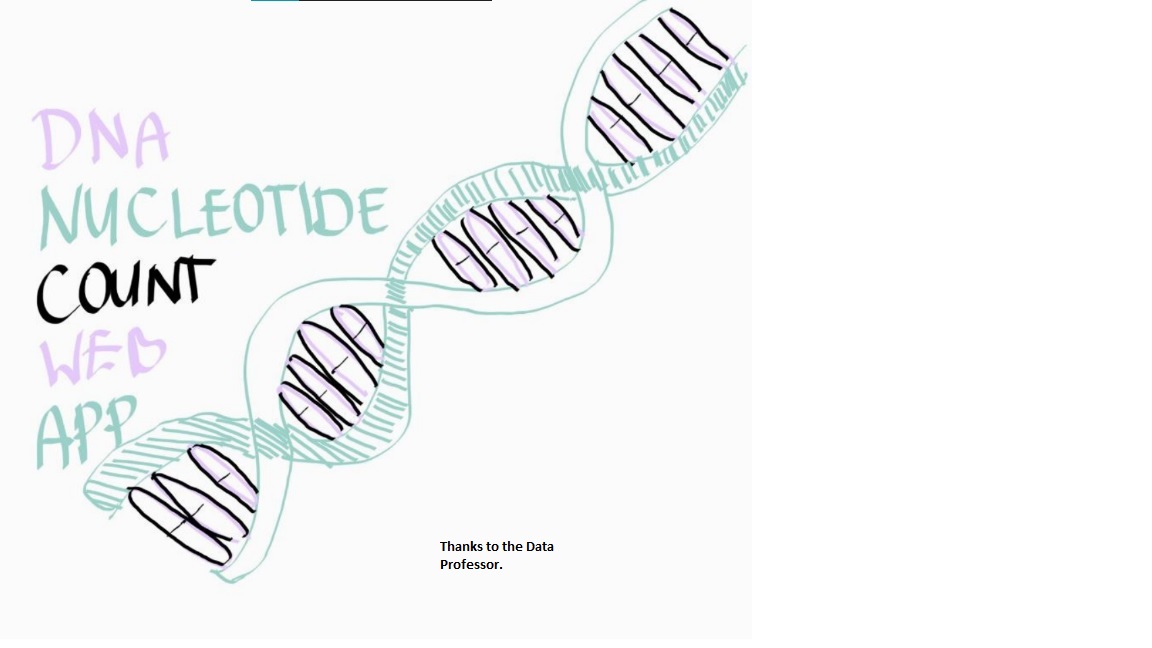 DNA
NUCLEOTIDE
COUNT
WEB
APP
Thanks to the Data
Professor.